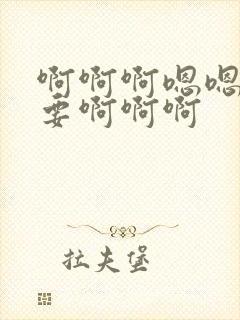 啊啊啊嗯嗯
要啊啊啊
拉夫堡